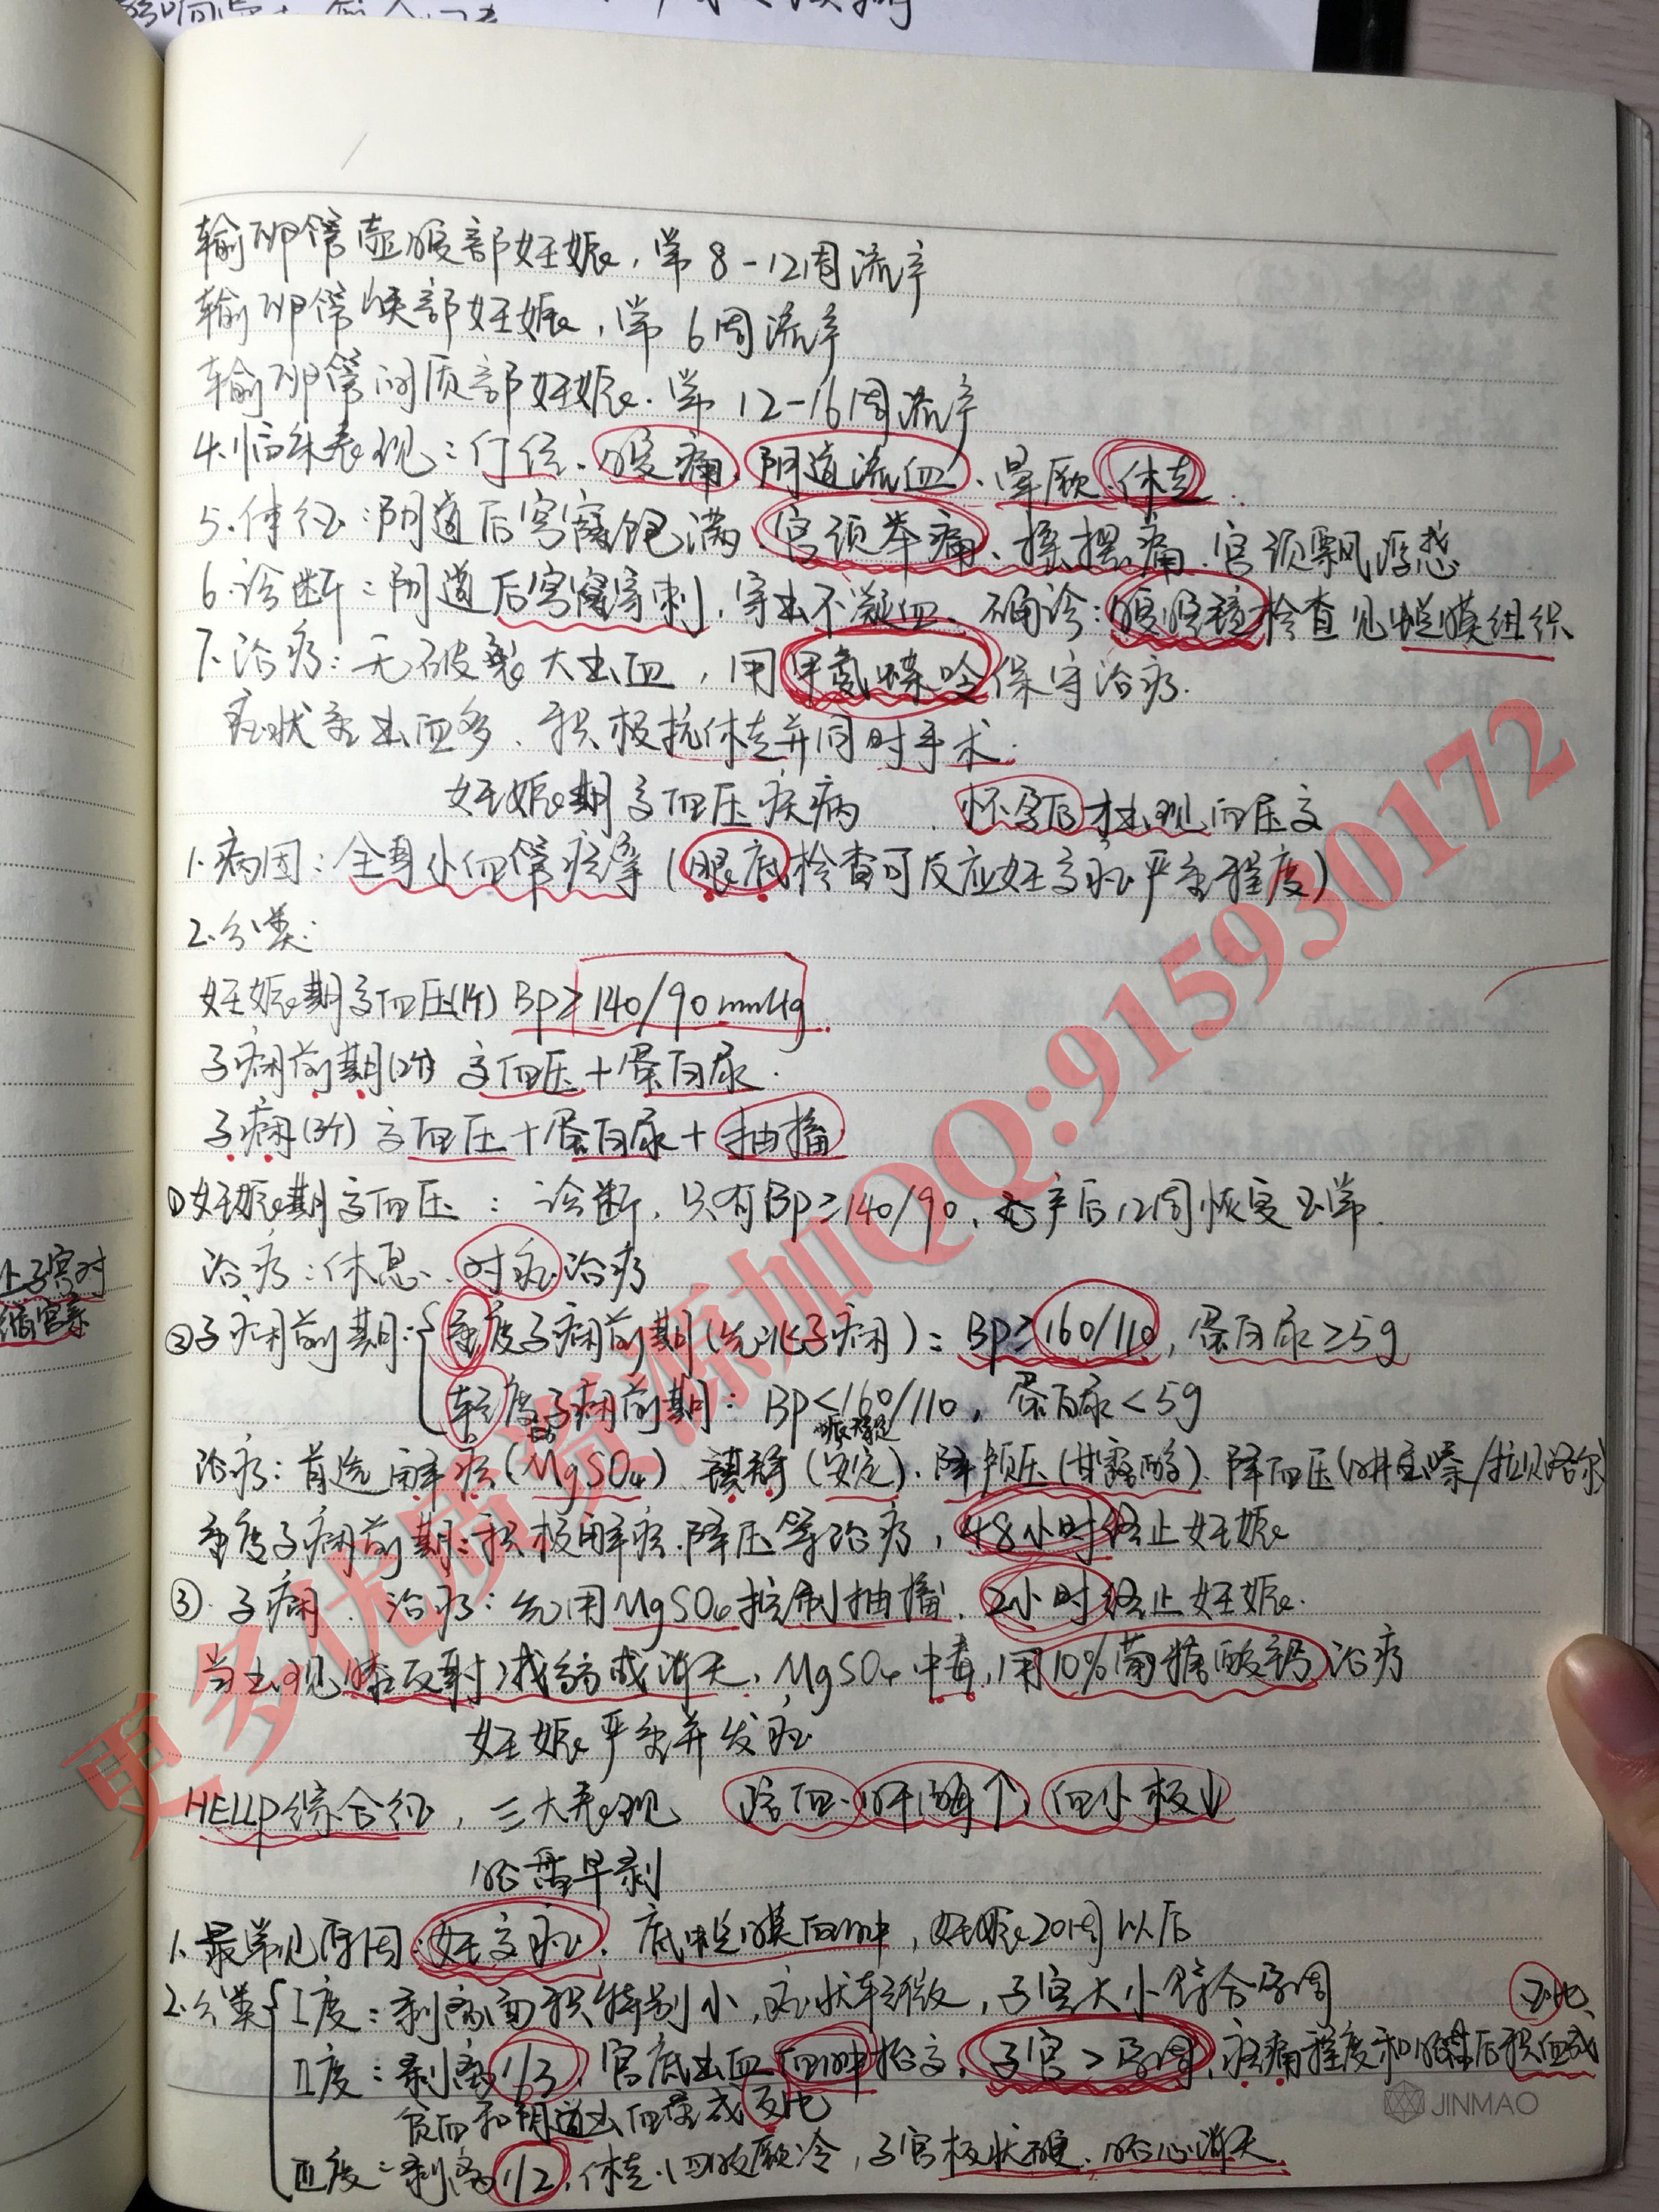 输卵管壶腹部妊娠，常8-12周流产
输卵管峡部妊娠，常6周流产
输卵管间质部妊娠，常12-16周流产
4.临床表现：停经、腹痛、阴道流血、晕厥、休克.
5.体征：阴道后穹窿饱满、宫颈举痛、摇摆痛、宫颈飘浮感
6.诊断：阴道后穹窿穿刺，穿出不凝血、确诊：腹腔镜检查见绒膜组织
7.治疗：无破裂大出血，用甲氨蝶呤保守治疗.
症状重出血多、积极抗休克并同时手术.
妊娠期高血压疾病 怀孕后才出现血压高
1.病因：全身小血管痉挛（眼底检查可反应妊高症严重程度）
2.分类：
妊娠期高血压(1个) BP≥140/90mmHg
子痫前期(2个) 高血压+蛋白尿.
子痫(3个) 高血压+蛋白尿+抽搐
①妊娠期高血压：诊断，只有BP≥140/90，产后12周恢复正常.
治疗：休息、对症治疗
上子宫对
缩宫素
②子痫前期：{重度子痫前期(先兆子痫)：BP≥160/110，蛋白尿≥5g
轻度子痫前期：BP<160/110，蛋白尿<5g
治疗：首选解痉(MgSO4)、镇静(安定)、降颅压(甘露醇)、降血压(肼屈嗪/拉贝洛尔)
重度子痫前期：积极解痉.降压等治疗，48小时终止妊娠
③.子痫、治疗：先用MgSO4控制抽搐、2小时终止妊娠.
当出现膝反射减弱或消失，MgSO4中毒，用10%葡糖酸钙治疗
妊娠严重并发症
HELLP综合征，三大表现 溶血、肝酶↑、血小板↓
胎盘早剥
1.最常见原因：妊高症、底蜕膜血肿，妊娠20周以后
2.分类{I度：剥离面积特别小，症状轻微，子宫大小符合孕周
正比
II度：剥离1/3，宫底出血血肿抬高，子宫>孕周，疼痛程度和胎盘后积血成
贫血和阴道出血量成反比
III度：剥离1/2，休克、四肢厥冷，子宫板状硬、胎心消失
JINMAO
更多优质资源加QQ:915930172